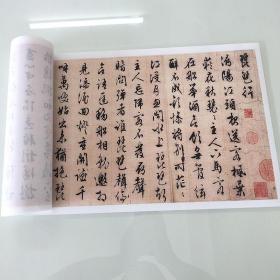 琵琶行
潯陽江頭夜送客楓葉
荻花秋瑟瑟主人下馬客
在船舉酒欲飲無管絃
醉不成歡慘將別別時茫茫
江浸月忽聞水上琵琶聲
主人忘歸客不發尋聲
暗問彈者誰琵琶聲停
欲語遲移船相近邀相
見添酒回燈重開宴千
呼萬喚始出來猶抱琵